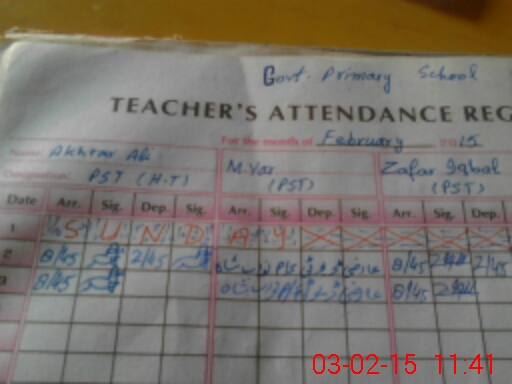 Govt. Primary School
TEACHER'S ATTENDANCE REG
For the month of February 2015
Name Akhtar Ali M. Yar Zafar Iqbal
Designation PST (H-T) (PST) (PST)
Date Arr. Sig. Dep. Sig. Arr. Sig. Dep. Sig. Arr. Sig. Dep.
1 S U N D A Y
2 8/45 2/45 8/45 2/45
3 8/45 8/45
03-02-15 11:41